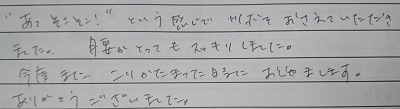 "あっそこそこ!" という感じで ツボをおさえていただき
ました。肩腰がとってもスッキリしました。
今度また こりかたまった時に おじゃまします。
ありがとうございました。